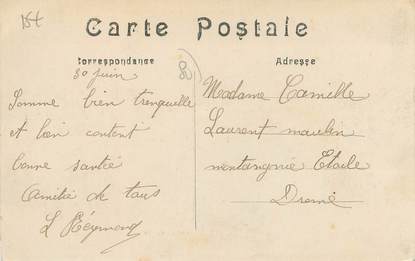 154
Carte Postale
Correspondance
Adresse
30 juin
Somme bien trenquille
et bien contont
bonne santée
Amitié de tous
L Reymond
Madame Camille
Laurent moulin
montangnie Etoile
Drome